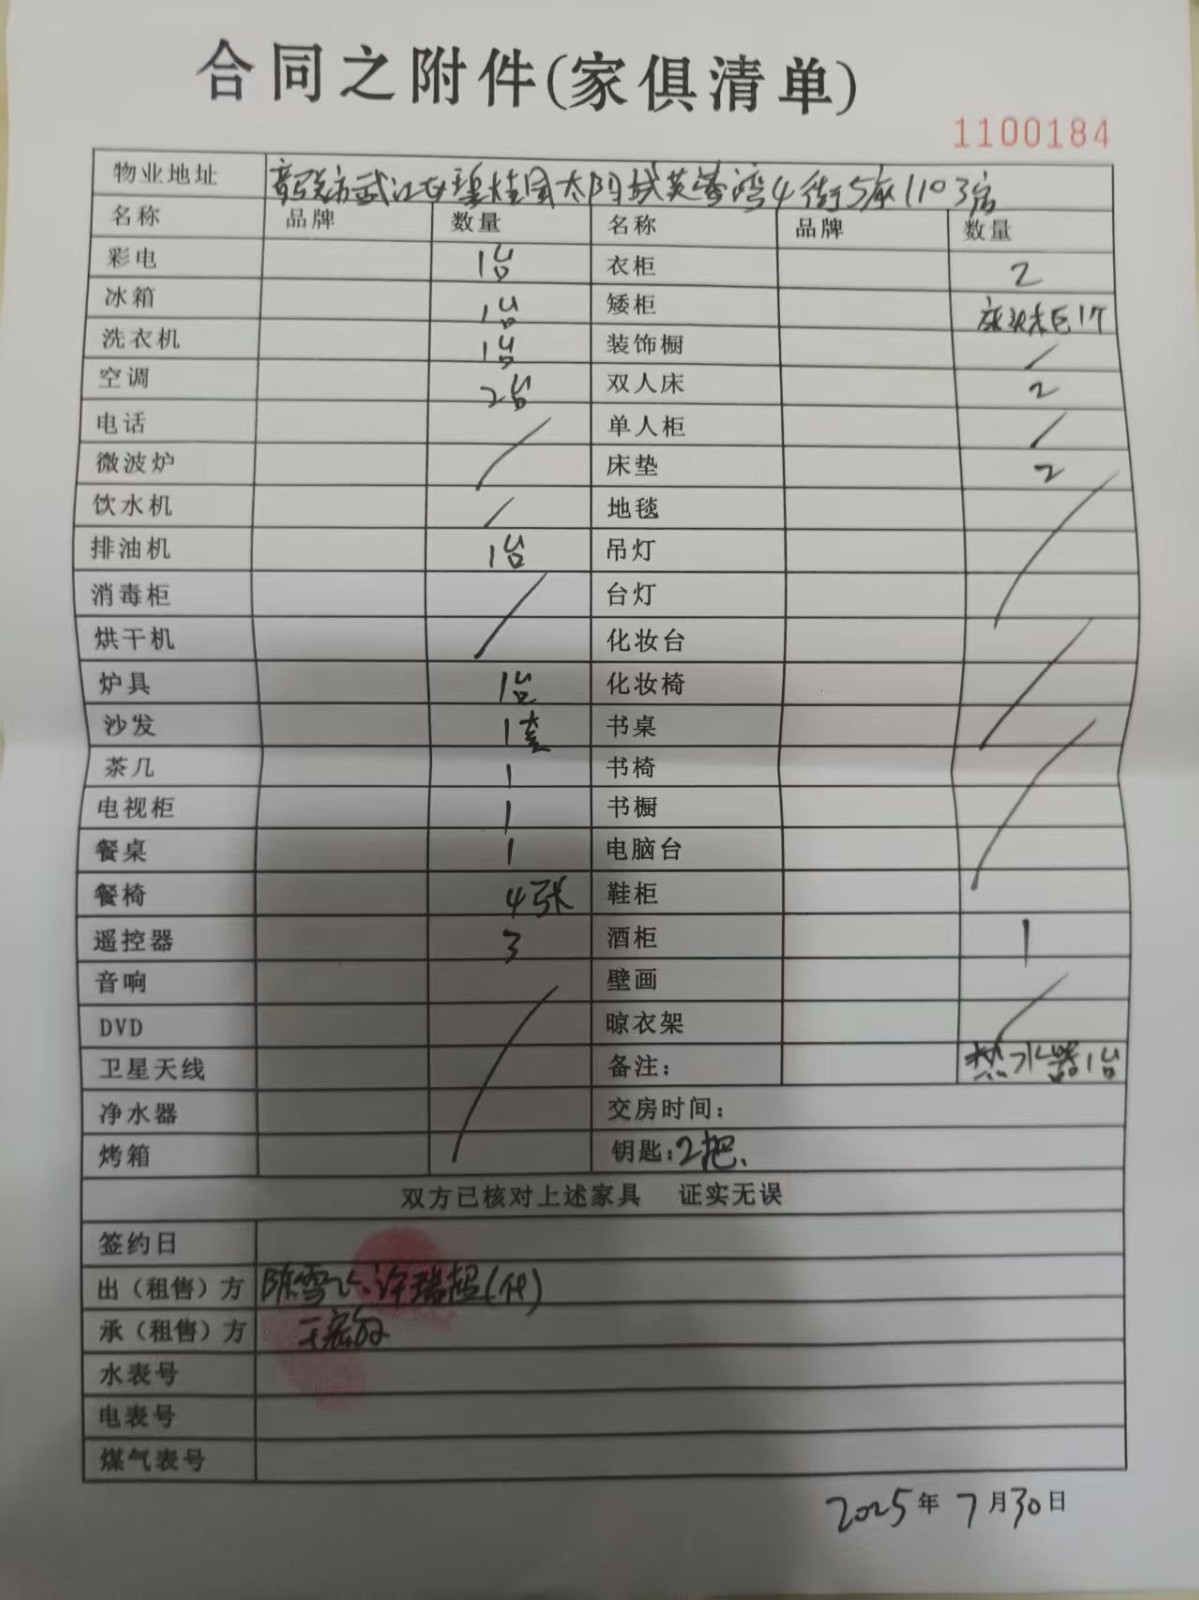 合同之附件(家俱清单)
1100184
物业地址 韶关市武江区碧桂园太阳城芙蓉湾4街5座1103房
名称 品牌 数量 名称 品牌 数量
彩电 1台 衣柜 2
冰箱 1台 矮柜 床头柜1个
洗衣机 1台 装饰橱 /
空调 2台 双人床 2
电话 / 单人柜 /
微波炉 床垫 2
饮水机 / 地毯 /
排油机 1台 吊灯
消毒柜 / 台灯
烘干机 化妆台 /
炉具 1台 化妆椅
沙发 1套 书桌
茶几 1 书椅 /
电视柜 1 书橱
餐桌 1 电脑台
餐椅 4张 鞋柜
遥控器 3 酒柜 1
音响 / 壁画 /
DVD 晾衣架
卫星天线 备注: 热水器1台
净水器 交房时间:
烤箱 钥匙:2把、
双方已核对上述家具 证实无误
签约日
出（租售）方 陈雪 许瑞超(代)
承（租售）方
水表号
电表号
煤气表号
2025年7月30日